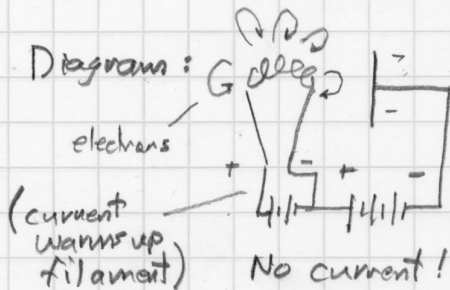 Diagram:
electrons
+ - + -
-
(current
warms up
filament)
No current!